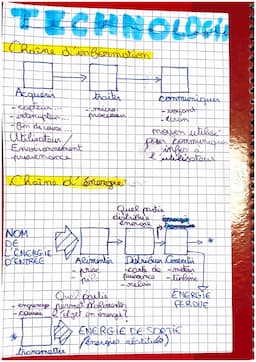 TECHNOLOGIE
Chaîne d'information
Acquérir traiter communiquer
- capteur... - micro - voyant
- interruption... processeur - écran
- Bon de caisse
Utilisateur / moyen utilisé
Environnement pour communiquer
provenance infos à
l'utilisateur
Chaîne d'énergie
Quel partie
distribue
énergie
NOM
DE
L'ÉNERGIE
D'ENTRÉE
Alimenter Distribuer Convertir
- prise - carte de - moteur
- pile puissance - turbine
- relais
ÉNERGIE
PERDUE
Quel partie
- engrenage permet d'alimenter
l'objet en énergie?
ÉNERGIE DE SORTIE
(énergies restitués)
Transmettre